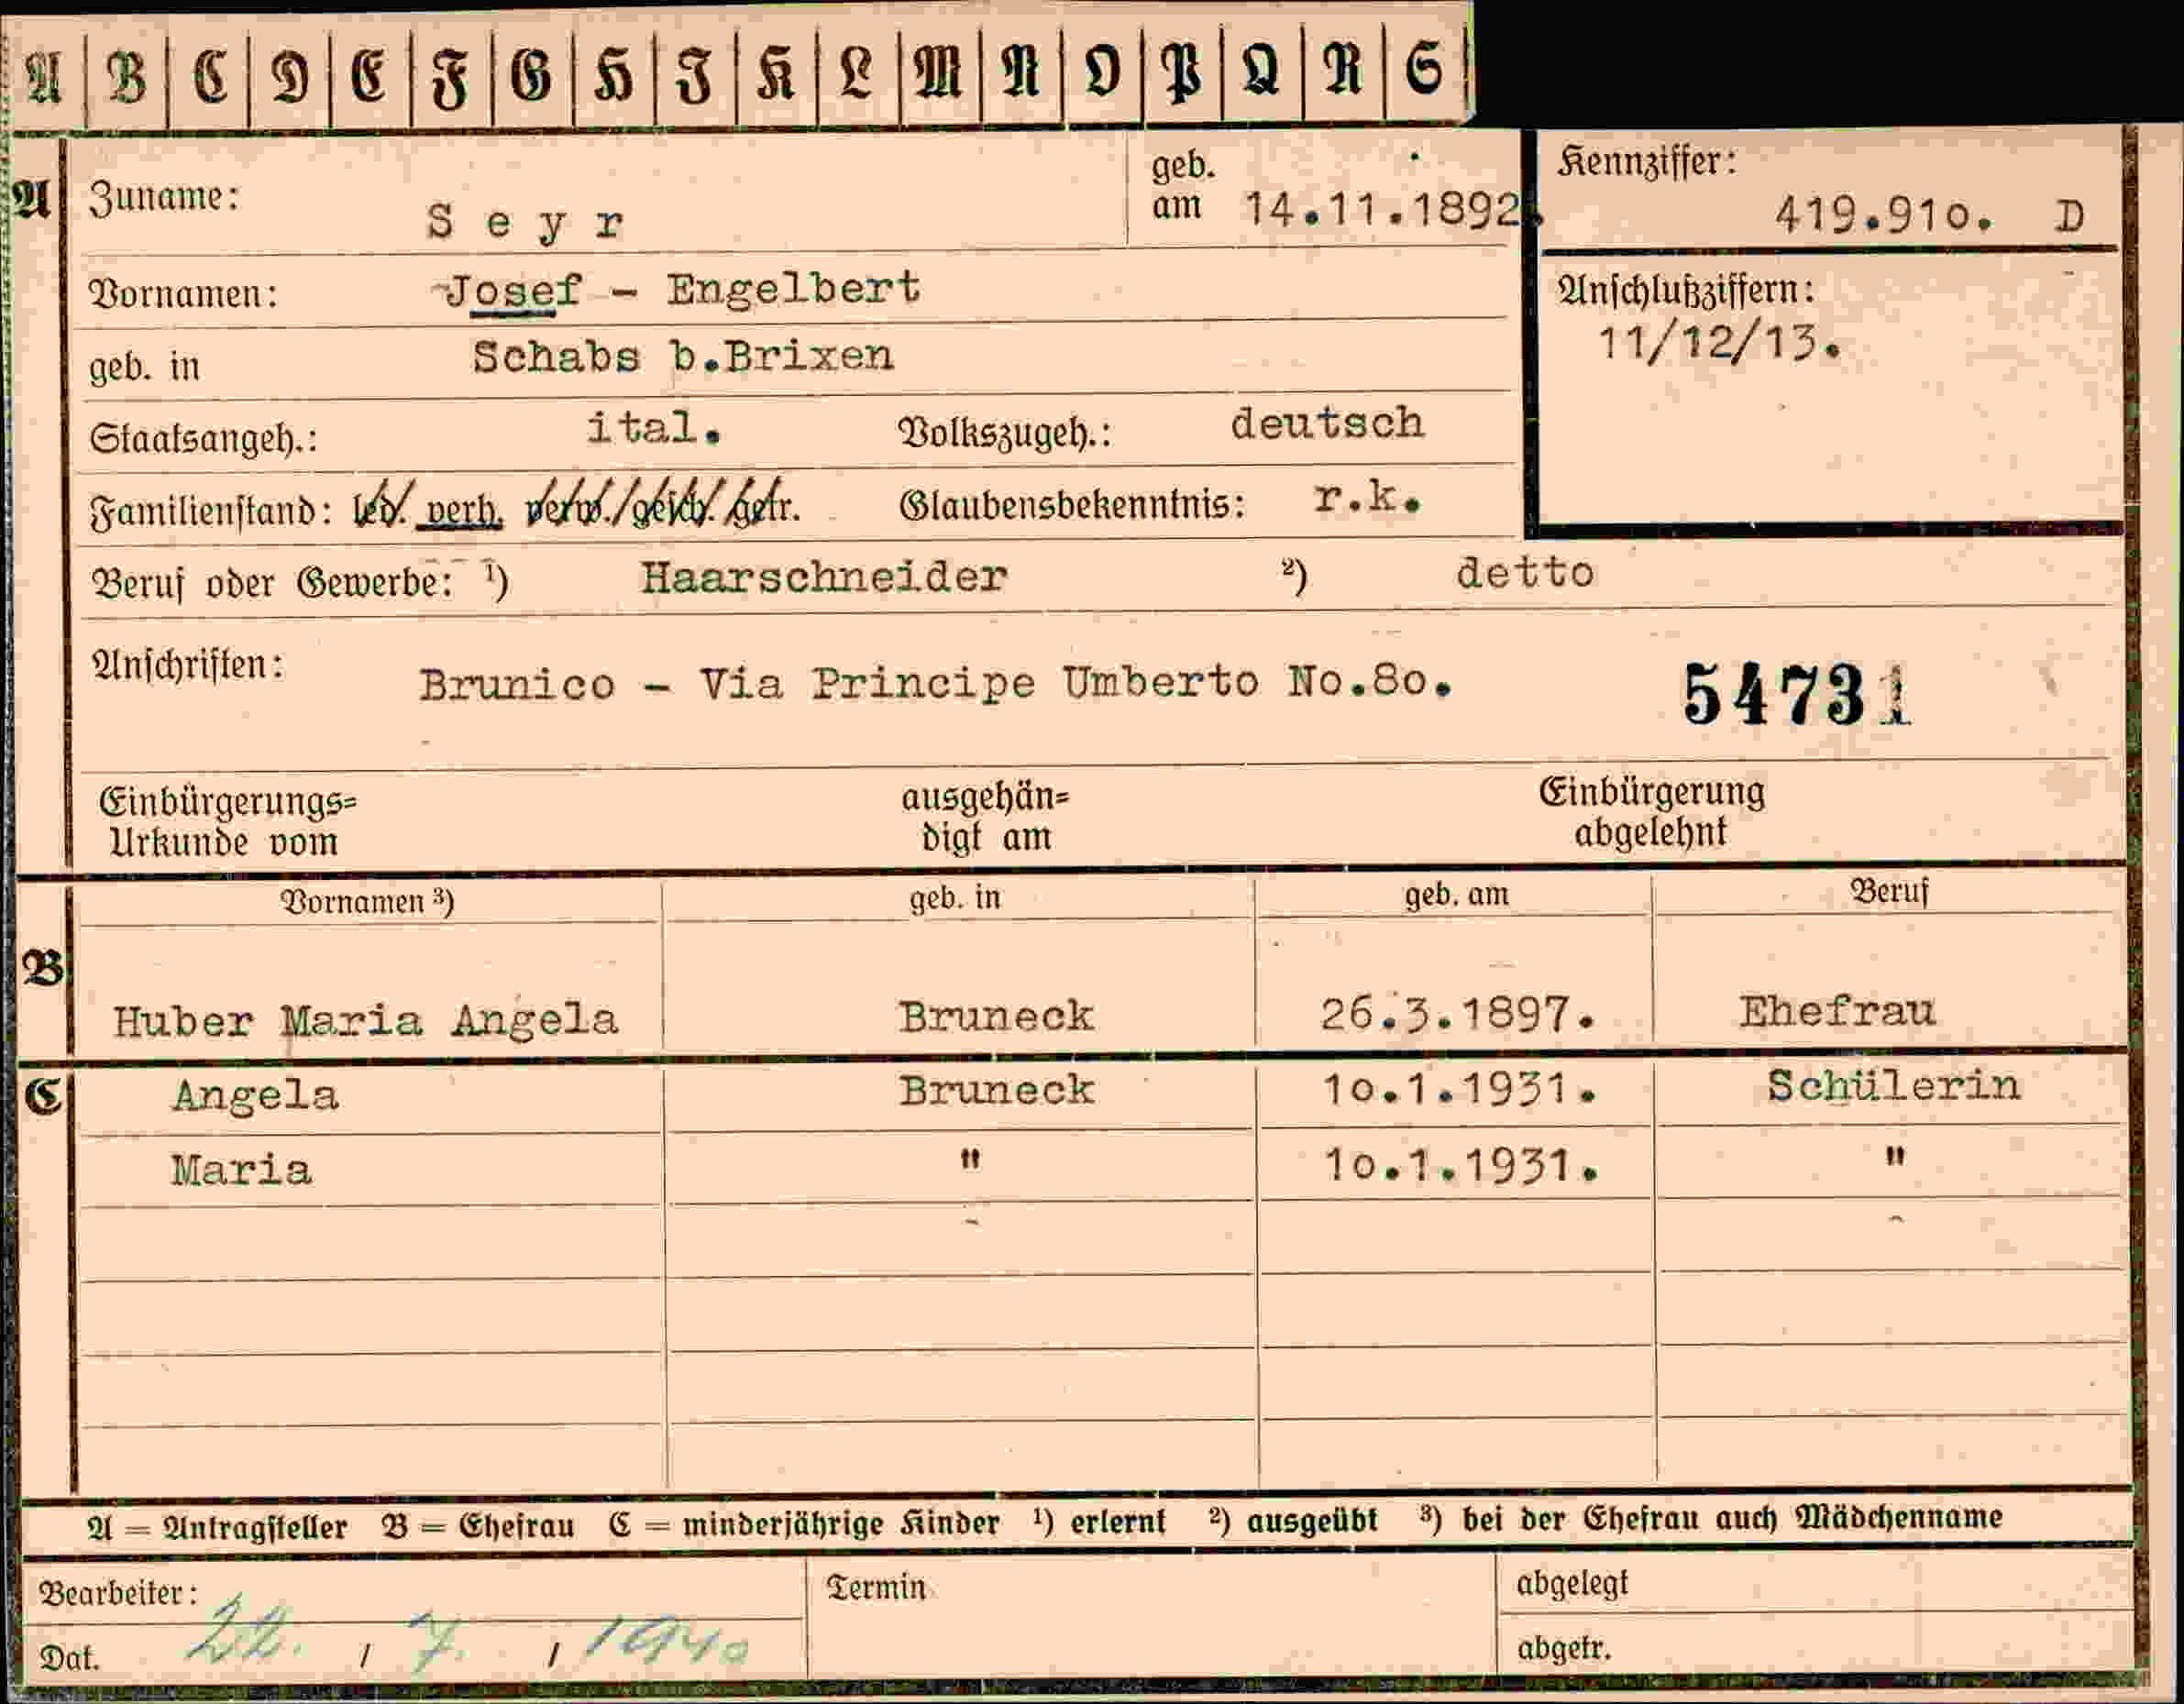 A B C D E F G H I K L M N O P Q R S
A
Zuname: Seyr geb. am 14.11.1892.
Kennziffer: 419.91o. D
Vornamen: Josef - Engelbert
Anschlußziffern:
11/12/13.
geb. in Schabs b.Brixen
Staatsangeh.: ital. Volkszugeh.: deutsch
Familienstand: led. verh. verw./gesch. getr. Glaubensbekenntnis: r.k.
Beruf oder Gewerbe: 1) Haarschneider 2) detto
Anschriften: Brunico - Via Principe Umberto No.8o. 54731
Einbürgerungs= ausgehän= Einbürgerung
Urkunde vom digt am abgelehnt
Vornamen 3) geb. in geb. am Beruf
B
Huber Maria Angela Bruneck 26.3.1897. Ehefrau
C Angela Bruneck 1o.1.1931. Schülerin
Maria " 1o.1.1931. "
A = Antragsteller B = Ehefrau C = minderjährige Kinder 1) erlernt 2) ausgeübt 3) bei der Ehefrau auch Mädchenname
Bearbeiter: Termin abgelegt
Dat. 22. / 7. / 1940 abgetr.